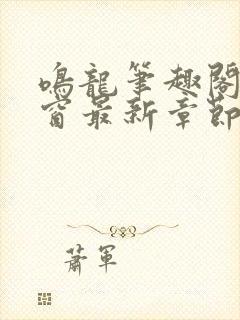 鳴龍筆趣閣
窗最新章節
蕭軍